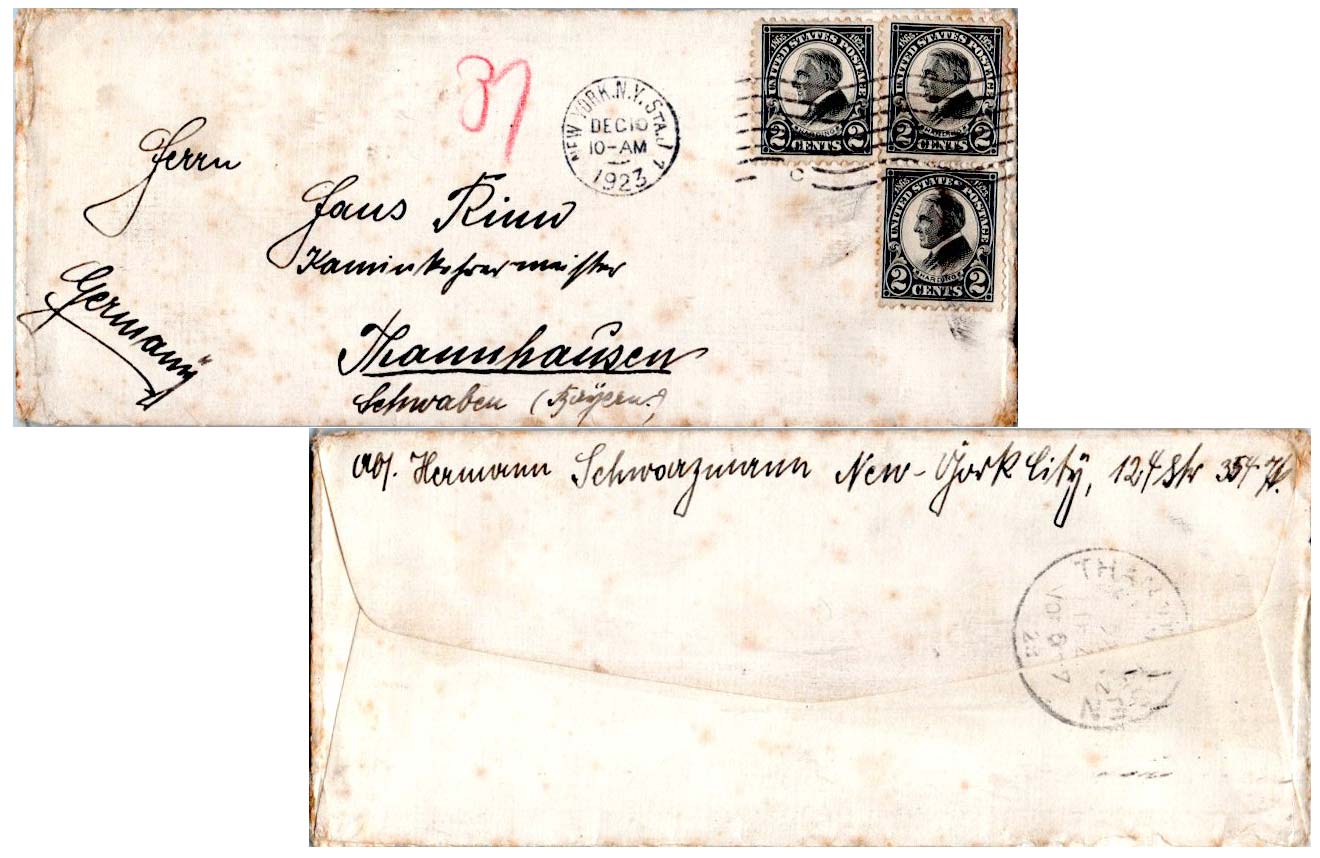 37
NEW YORK, N.Y. STA. J
DEC 10
10-AM
1923
1865 UNITED STATES POSTAGE 1923
HARDING
2 CENTS 2
1865 UNITED STATES POSTAGE 1923
HARDING
2 CENTS 2
1865 UNITED STATES POSTAGE 1923
HARDING
2 CENTS 2
Herrn
Hans
Kaminkehrermeister
Germany
Thannhausen
Schwaben (Bayern.)
Abs. Hermann Schwarzmann New-York City, 124 Str 354 W.